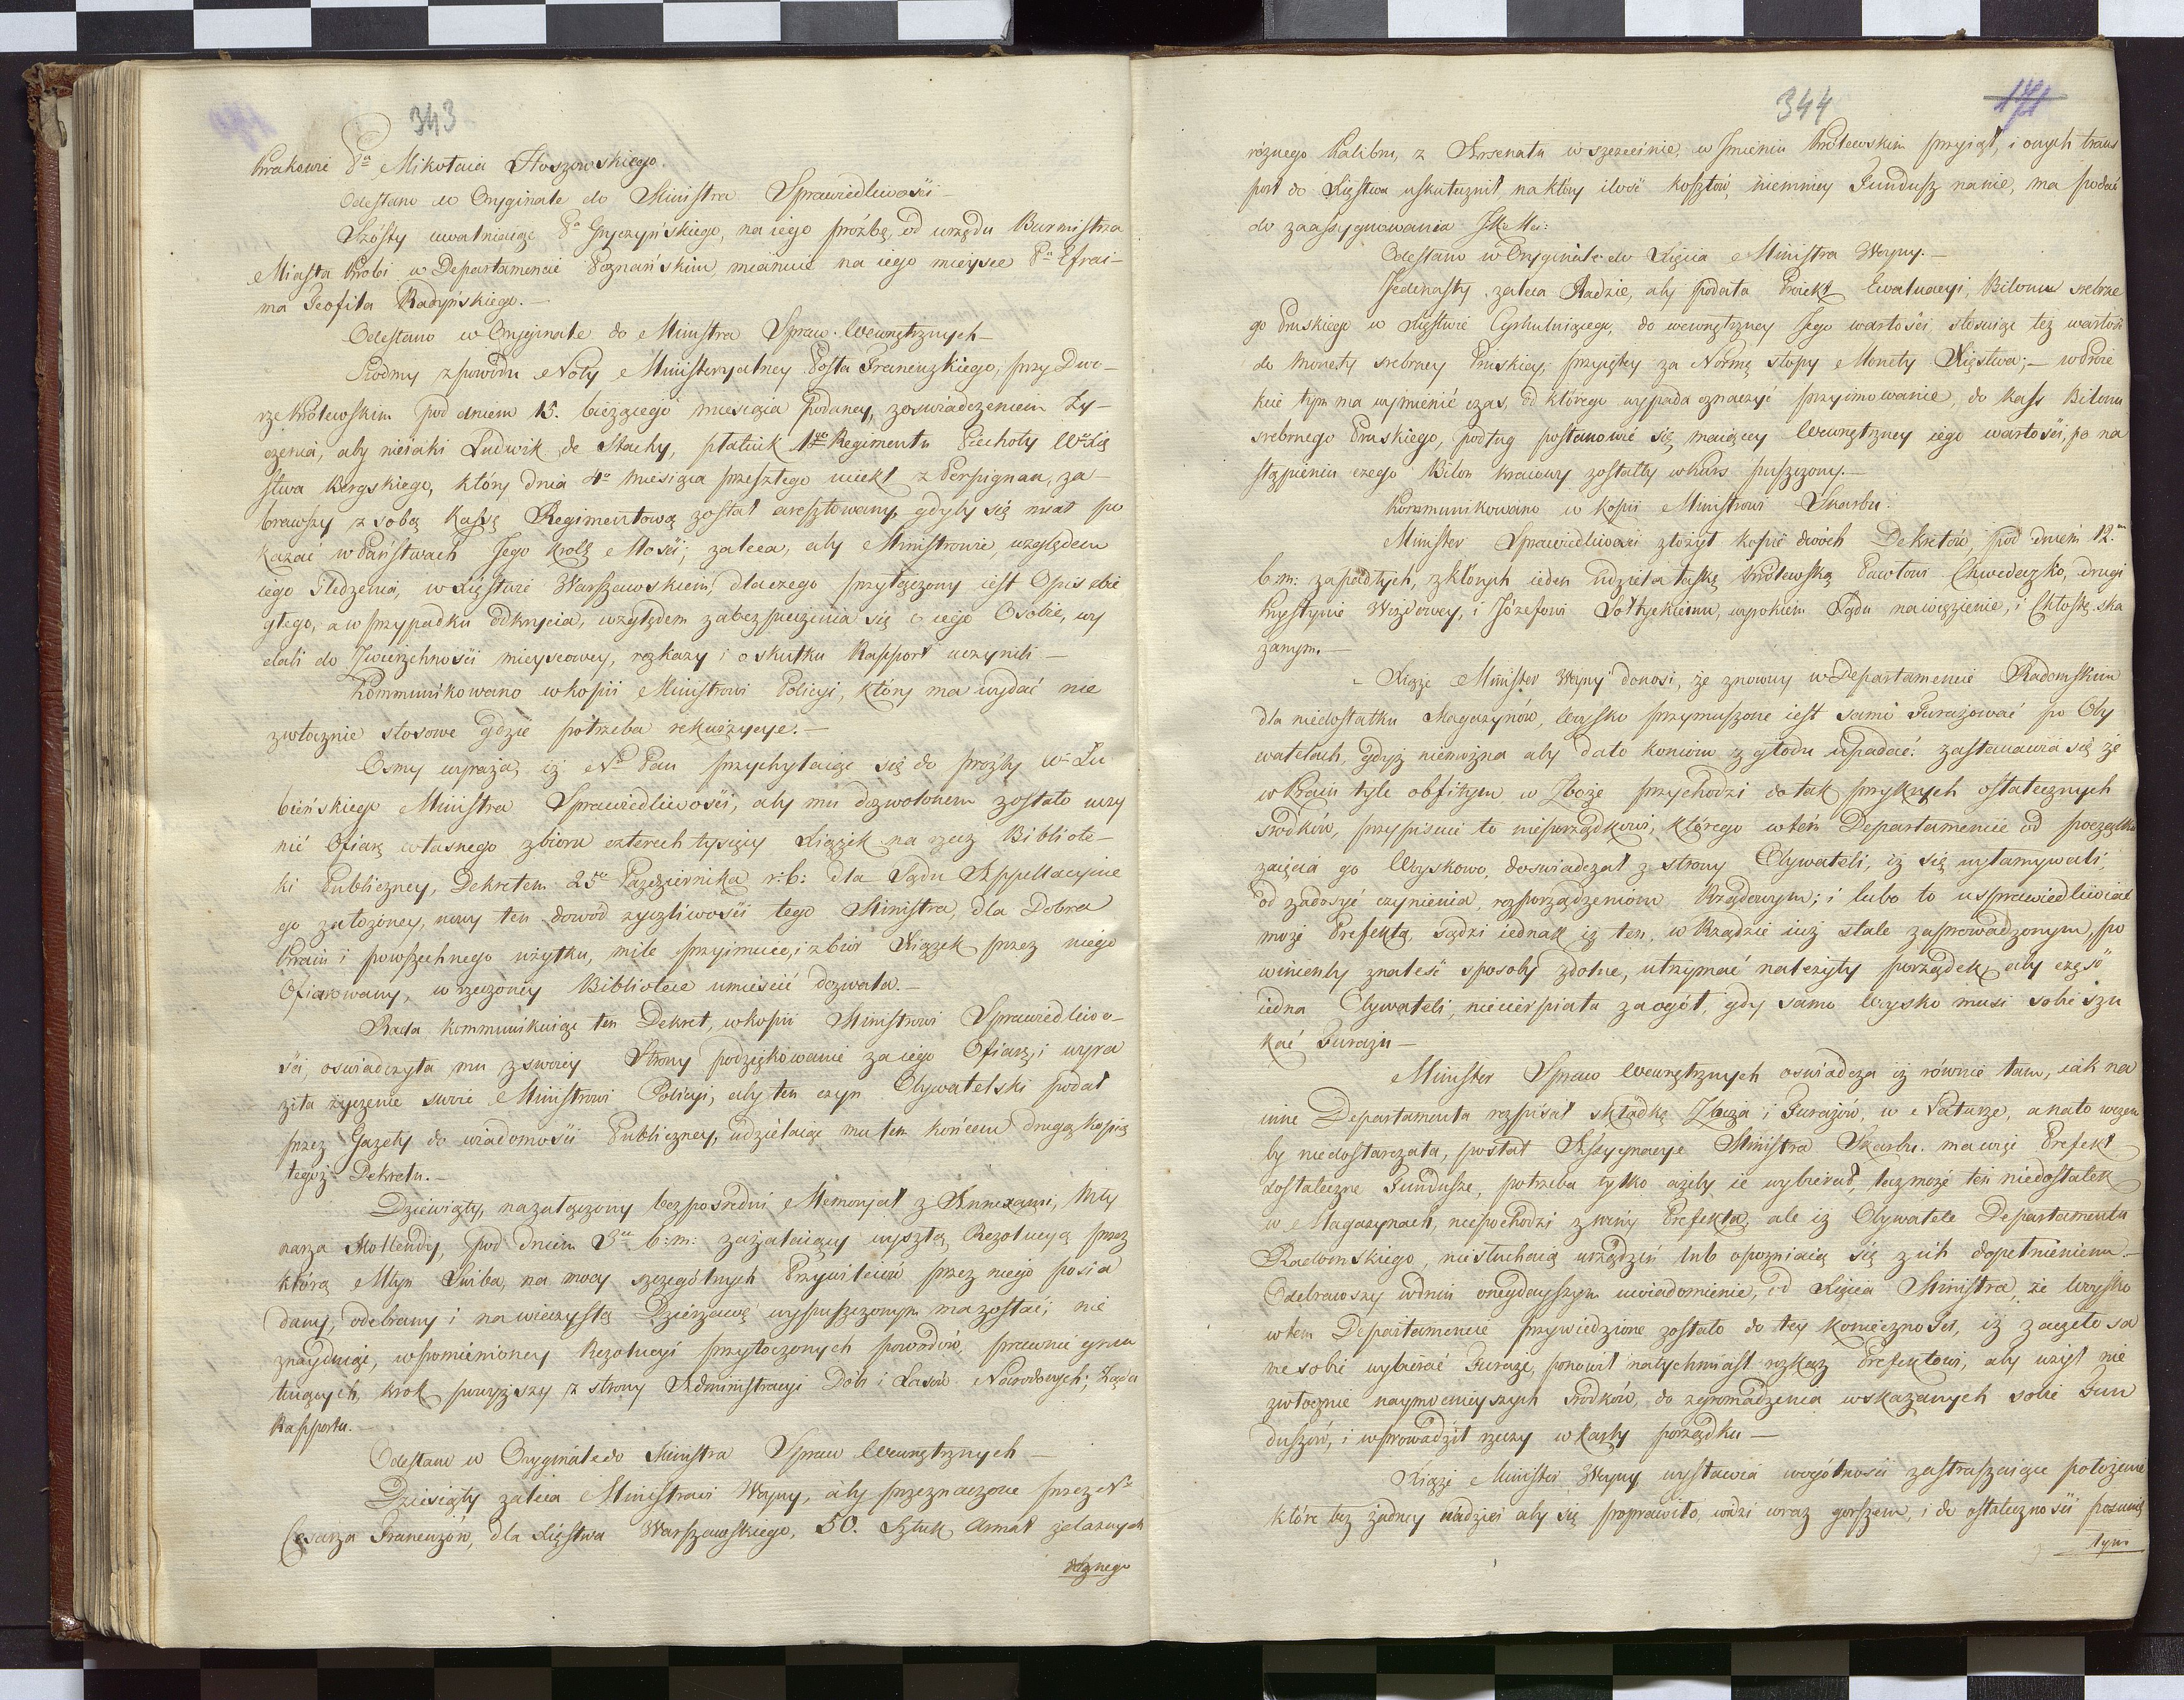 343
Krakowie Pa Mikołaia Hoszowskiego.
Odesłano w Oryginale do Ministra Sprawiedliwości —
Szósty uwalniaiąc Pa Gryczyńskiego, na iego próżbę, od urzędu Burmistrza
Miasta Krobi w Departamencie Poznańskim, mianuie na iego mieysce Pa Efrai-
ma Teofila Radyńskiego. —
Odesłano w Oryginale do Ministra Spraw Wewnętrznych —
Siodmy z powodu Noty Ministeryalney Posła Francuzkiego, przy Dwo-
rze Królewskim pod dniem 15. bieżącego miesiąca podaney, z oświadczeniem Ży-
czenia, aby nieiaki Ludwik de Stachy, płatnik 1go Regimentu Piechoty Wo Xię
stwa Bergskiego, który dnia 4o miesiąca przeszłego uciekł z Perpignan, za-
brawszy z sobą Kassę Regimentową został aresztowany, gdyby się miał po
kazać w Państwach Jego Krolę Mości; zaleca, aby Ministrowie względem
iego śledzenia, w Xięstwie Warszawskiem, dlaczego przyłączony iest Opis zbie
głego, a w przypadku odkrycia, względem zabezpieczenia się o iego Osobie, wy
dali do Zwierzchności mieyscowey, rozkazy i o skutku Rapport uczynili —
Kommunikowano w kopii Ministrowi Policyi, który ma wydać nie
zwłocznie stosowne gdzie potrzeba rekwizycye. —
Osmy wyraża, iż Nay Pan przychylaiąc się do prożby Wo Łu
bieńskiego Ministra Sprawiedliwości, aby mu dozwolonem zostało uczy
nić Ofiarę własnego zbioru czterech tysięcy Xiążek na rzecz Bibliote-
ki Publiczney, Dekretem 25o Października r: b: dla Sądu Appellacyine
go założoney, nowy ten dowód życzliwości tego Ministra, dla Dobra
Kraiu i powszechnego użytku, mile przyimuie, i zbiór Xiążek przez niego
Ofiarowany, w rzeczoney Bibliotece umieścić dozwala. —
Rada kommunikuiąc ten Dekret, w kopii Ministrowi Sprawiedliwo-
ści, oświadczyła mu z swoiey Strony podziękowanie za iego Ofiarę, i wyra
ziła życzenie swoie Ministrowi Policyi, aby ten czyn Obywatelski podał
przez Gazety do wiadomości Publiczney, udzielaiąc mu tem końcem drugą kopią
tegoż Dekretu. —
Dziewiąty, na załączony bezpośredni Memoryał z Annexami, Mły
narza Mollendy, pod dniem 3o b: m: zażalaiący wyszłą Rezolucyą przez
którą Młyn Swiba, na mocy szczególnych Przywileiów przez niego posia
dany, odebrany i na wieczystą Dzierżawę wypuszczonym ma zostać; nie
znayduiąc, wspomnioney Rezolucyi przytoczonych powodów, prawnie grun
tuiących, krok powyższy z strony Administracyi Dóbr i Lasów Narodowych; Żąda
Rapportu. —
Odesłano w Oryginale do Ministra Spraw Wewnętrznych —
Dziesiąty zaleca Ministrowi Woyny, aby przeznaczone przez No
Cesarza Francuzów, dla Xięstwa Warszawskiego, 50. Sztuk Armat żelaznych
różnego
344
171
różnego Kalibru, z Arsenału w Szczecinie, w Imieniu Królewskim przyiął, i onych trans
port do Xięstwa uskutecznił na który ilość kosztów, niemniey Fundusz na nie, ma podać
do zaassygnowania
Odesłano w Oryginale do Xięcia Ministra Woyny. —
Jedenasty zaleca Radzie, aby podała Proiekt Ewaluacyi, Bilonu srebrne
go Pruskiego w Xięstwie Cyrkuluiącego, do wewnętrzney Jego wartości, stosuiąc też wartość
do Monety srebrney Pruskiey, przyiętey za Normę stopy Monety Xięstwa; — w Proie
kcie tym ma wymienić czas, od którego wypada oznaczyć przyimowanie, do Kass Bilonu
srebrnego Pruskiego, podług postanowić się maiącey Wewnętrzney iego wartości, po na
stąpieniu czego Bilon kraiowy zostałby w kurs puszczony. —
Kommunikowano w kopii Ministrowi Skarbu.
Minister Sprawiedliwości złożył kopie dwóch Dekretów, pod dniem 12.
b: m: zapadłych, z których ieden udziela łaskę Królewską Pawłowi Chwedeczko, drugi
Krystynie Wiżdowey, i Józefowi Sołtyskiemu, wyrokiem Sądu na więzienie, i Chłostę ska
zanym. —
- Xiąże Minister Woyny donosi, że znowu w Departamencie Radomskim
dla niedostatku Magazynów, Woysko przymuszone iest samo Furażować po Oby
watelach, gdyż niemożna aby dało koniom z głodu upadać: zastanawia się że
w Kraiu tyle obfitym w Zboże przychodzi do tak przykrych ostatecznych
środków, przypisuie to nieporządkowi, którego w tém Departamencie od początku
zaięcia go Woyskowo, doświadczał z strony Obywateli, iż się wyłamywali,
od zadosyć czynienia rozporządzeniom Rządowym; i lubo to usprawiedliwiać
może Prefekta, sądzi iednak iż ten, w Rządzie iuż stale zaprowadzonym, po
winienby znaleść sposoby zdolne, utrzymać należyty porządek, aby część
iedna Obywateli, niecierpiała za ogół, gdy samo Woysko musi sobie szu
kać Furażu —
Minister Spraw Wewnętrznych oświadcza iż równie tam, iak na
inne Departamenta rozpisał składkę Zboża i Furażów, w Naturze, a na to czego
by niedostarczała, posłał Assygnacye Ministra Skarbu. ma więc Prefekt
dostateczne Fundusze, potrzeba tylko ażeby ie wybierał, lecz może ten niedostatek
w Magazynach, niepochodzi z winy Prefekta, ale iż Obywatele Departamentu
Radomskiego, niesłuchaią urządzeń lub opoźniaią się z ich dopełnieniem. —
Odebrawszy w dniu onegdayszym uwiadomienie, od Xięcia Ministra, że Woysko
w tem Departamencie przywiedzione zostało do tey konieczności, iż zaczęło sa
me sobie wybierać Furaże, ponowił natychmiast rozkaz Prefektowi, aby użył nie
zwłocznie naymocnieyszych środków, do zgromadzenia wskazanych sobie Fun
duszów, i wprowadził rzeczy w karby porządku —
Xiąże Minister Woyny wystawia w ogólności zastraszaiące położenie
które bez żadney nadziei aby się poprawiło, widzi coraz gorszem, i do ostateczności posunię
tym